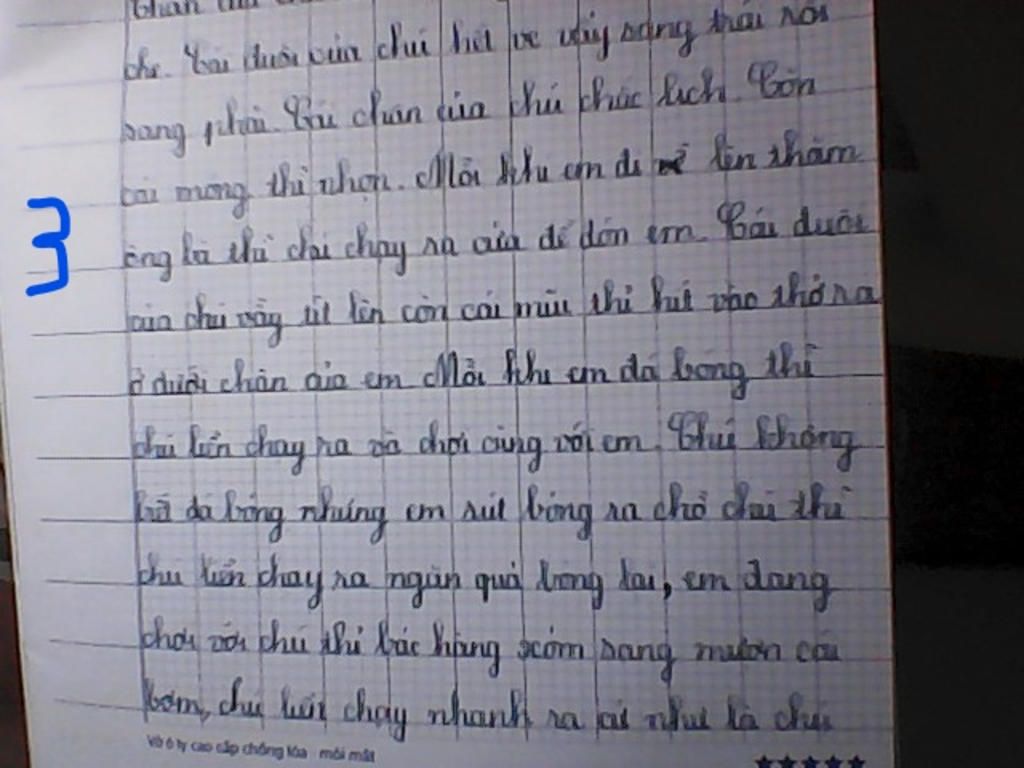 thân của
che. Cái đuôi của chú hơi ve vẩy sang trái rồi
sang phải. Cái chân của chú chắc lịch. Còn
cái móng thì nhọn. Mỗi khi em đi lên thăm
ông bà thì chú chạy ra cửa để đón em. Cái đuôi
của chú vẫy tít lên còn cái mũi thì hít vào thở ra
ở dưới chân của em Mỗi khi em đá bóng thì
chú liền chạy ra và chơi cùng với em. Chú không
đá bóng nhưng em sút bóng ra chỗ chú thì
chú liền chạy ra ngăn quả bóng lại, em đang
chơi với chú thì bác hàng xóm sang mượn cái
bơm, chú liền chạy nhanh ra cứ như là chú
Vở ô ly cao cấp chống lóa mỏi mắt
3